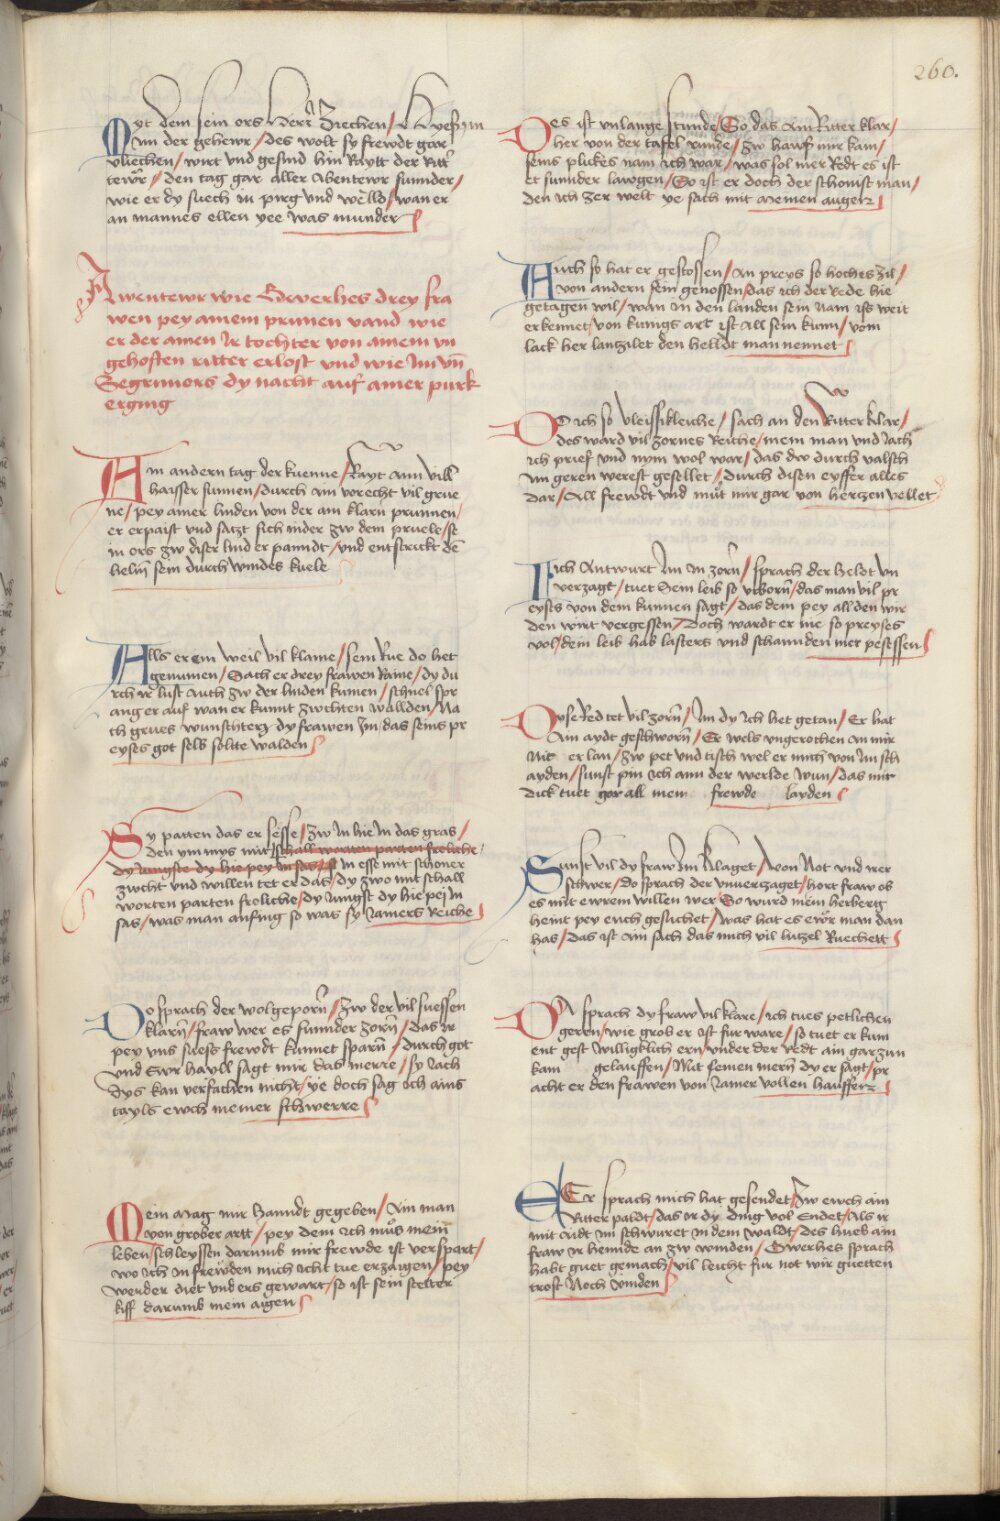 260.
Myt dem sein ors Herr ziechen / Hueß im
nun der geheẅr / des wolt sy frewdt gar
vliechen / wirt vnd gesind hin Raytt der Ritt
tewr̈ / den tag gar aller Abentewr sunnder /
wie er dy suech in pirg vnd welld / wan er
an mannes ellen yee was munder
Awentewr wie Gwerhes drey fra
wen pey ainem prunen vand wie
er der ainen Ir tochter von ainem vn
gehoften ritter erlost vnd wie im vn̄
Segrimors dy nacht auf ainer purk
erging
Am andern tag der kuenne / Rayt ann vill
haisser sunnen / durch ain vorecht vil grue
ne / pey ainer linden von der ain klarn prunnen /
er erpaist vnd satzt sich nider zw dem pruele / se
in ors zw diser lind er panndt / vnd entstrickt dē
helm̄ sein durch windes kuele
Alls er ein weil vil klaine / sein Rue do het
genumen / Sach er drey frawen Raine / dy du
rch ir lust auch zw der linden kumen / schnel spr
ang er auf wan er kunnt zwchten wallden / Na
ch grues wunschterz dy frawen Im / das seins pr
eyses got selb sollte walden
Sy paten das er sesse / zw In hie In das gras /
den vnmus mit schall worten parten froliche /
dy Iungste dy hie pey in sas / ist In esse mit schöner
zwcht vnd willen tet er das / dy zwo mit schall
worten parten froliche / dy Iungst dy hie pej In
sas / was man anfing so was sy Iamers Reiche
Do sprach der wolgeporn̄ / zw der vil suessen
klarn̄ / fraw wer es sunnder zorn̄ / das ir
pey vns suess frewdt kunnet sparn̄ / durch got
vnd Ewr hayll sagt mir das merre / sy Iach
dys kan versachen nicht / ye doch sag och ains
tayls ewch meiner schwerre
Mein Mag mir hanndt gegeben / Ain man
von grober artt / pey dem ich mus mein
leben / schleyssen darumb mir frewde ist verspart /
wo ich in frewden mich icht tue erzaigen / pey
werder diet vnd ers gewart / so ist sein stetter
kiff darumb mein aigen
Des ist vnlange stunde / So das ain Ritter klar /
her von der tafel runde / zw haws mir kam /
seins plickes nam ich war / was sol mer Redt es ist
et sunnder lawgen / So ist er doch der schonist man /
den ich zer welt ye sach mit meinen augen
Auch so hat er gestossen / an preys so hoches zil /
von andern sein genossen / das ich der Rede hie
getagen wil / wan in den landen sein Nam ist weit
erkennet / von kunigs art ist all sein kunn / vom
lack her lantzilet den helldt man nennet
Do ich so vleissikleiche / sach an den Ritter klar /
des ward vil zornes Reiche / mein man vnd Iach
ich prief vnd nym wol war / das dw durch valsch
im geren werest gesellet / durch disen eyffer alles
dar / All frewdt vnd mut mir gar von hertzen vellet
Ich Antwurt Im in zorn̄ / sprach der heldt vn
verzagt / tuet Sein leib so vrborn̄ / das man vil pr
eyses von dem kunnen sagt / das dem pey all den wir
den wirt vergessen / Doch wardt er nie so preyses
vol / dem leib hab lasters vnd schannden mer pesessen
Dyse Red tet vil zorn̄ / Im dy ich het getan / Er hat
Ain aydt geschworn̄ / Er wels vngerochen an mir
Nit er lan / zw pet vnd tisch wel er mich von im sch
ayden / sunst pin ich ann der werlde wun / das mir
dick tuet gar all mein frewde layden
Sunst vil dy fraw Im klaget / von Not vnd irer
schwer / do sprach der vnuerzaget / hort fraw ob
es mit ewrem willen wer / So wurd mein herberg
heint pey euch gesuchet / was hat es ewr̈ man dan
has / das ist ain sach das mich vil lutzel Ruechett
Da sprach dy fraw vil klare / ich tues petlichen
geren / wie grob er ist fur ware / so tuet er kum
ent gest willigklich ern / vnder der redt ain garzun
kam gelauffen / Mit seinen mern̄ dy er sagt / pr
acht er den frawen von Iamer vollen hauffen
Er sprach mich hat gesendet / zw ewch ain
Ritter paldt / das er dy ding vol Endet / Als ir
mit Aidt im schwuret in dem waldt / des hueb ain
fraw ir hennde an zw winden / Gwerhes sprach
habt guet gemach / vil leicht fur not wir guetten
trost Noch vinden